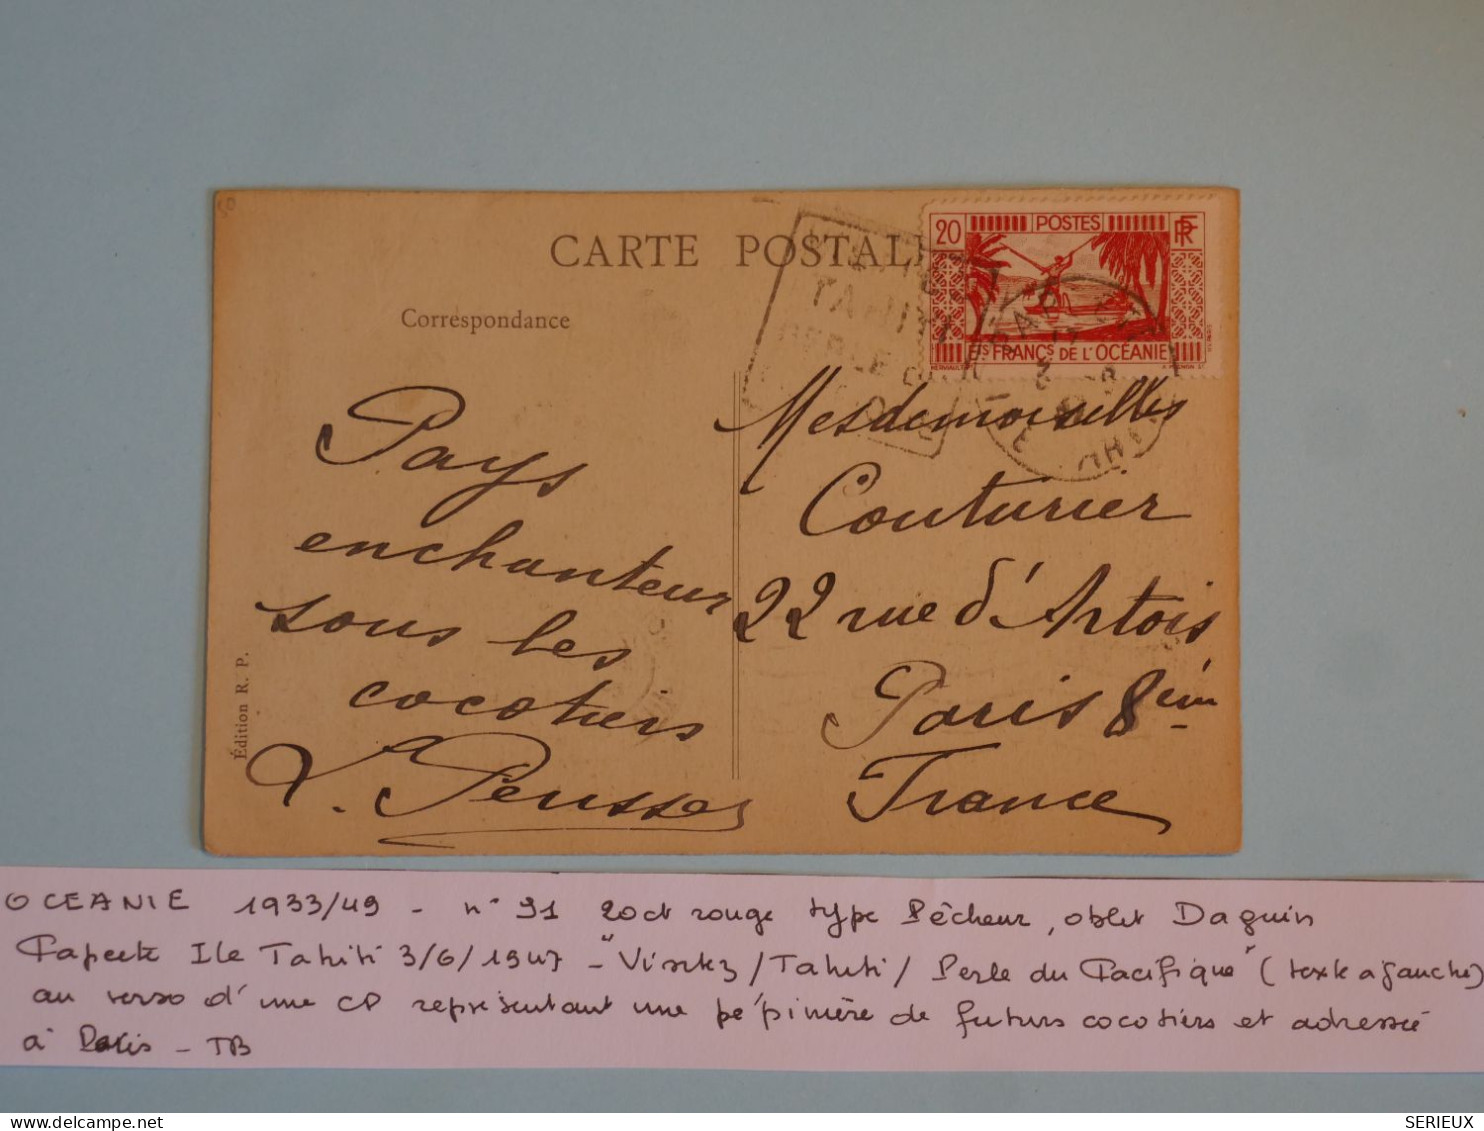 CARTE POSTALE
Correspondance
20 POSTES RF
Ets FRANCS DE L'OCÉANIE
TAHITI
PERLE DU
Pays
enchanteur
sous les
cocotiers
Mesdemoiselles
Couturier
22 rue d'Artois
Paris 8èm
France
Édition R. P.
OCEANIE 1933/49 - n° 91 20ct rouge type Pêcheur, oblit Daguin
Papeete Ile Tahiti 3/6/1947 - "Visitez/Tahiti/ Perle du Pacifique" (texte à gauche)
au verso d'une CP représentant une pépinière de futurs cocotiers et adressée
à Paris - TB
SERIEUX
delcampe.net